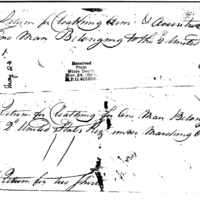 Return for Cloathing Arms & Accoutre
One Man Belonging to the 2d United
May 23
Received
from
State Dep't.
Nov. 24, 190
R.P.O.
Return for Cloathing for One Man Belon
2d United States Regt under Marching O
Return for two Shirt